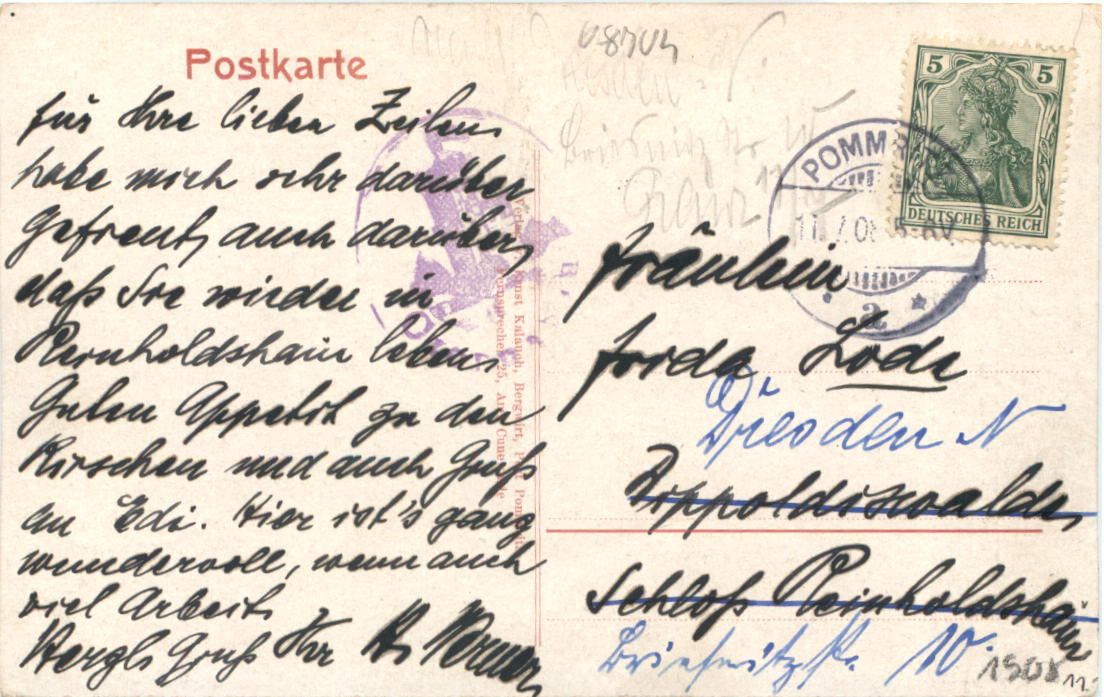 Postkarte
für Ihre lieben Zeilen
habe mich sehr darüber
gefreut, auch darüber,
daß Sie wieder in
Reinholdshain leben.
Guten Appetit zu den
Kirschen und auch Gruß
an Edi. Hier ist's ganz
wundervoll, wenn auch
viel Arbeit.
Herzl. Gruß Ihr
Ernst Kalauch, Bergwirt, Post
Fernsprecher 25, Amt Cunewalde
5 5
DEUTSCHES REICH
POMMR
11.7.08 5-6V
a
Fräulein
Frida Lode
Dresden N
Dippoldiswalde
Schloß Reinholdshain
Briesnitzstr. 10.
1908